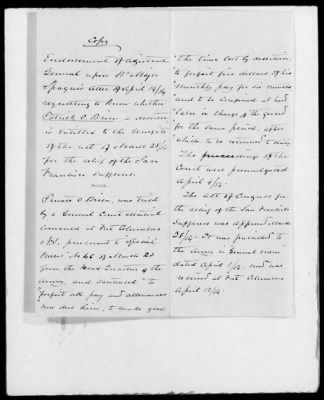 Copy
Endorsement of adjutant
General upon Bt Major
Sprague's letter of April 16/54
requesting to know whether
Patrick O. Brien a deserter
is entitled to the benefits
of the act of March 28/54
for the relief of the San
Francisco sufferers.
Private O. Brien, was tried
by a General Court Martial
convened at Fort Columbus
N.Y. pursuant to "Special
Orders" No 46 of March 24
from the Head Quarters of the
Army, and sentenced "to
forfeit all pay and allowances
now due him, to make good
"the time lost by desertion
"to forfeit five dollars of his
"monthly pay for six months
"and to be confined at hard
"labor in charge of the guard
"for the same period, after
"which to be returned to duty"
The proceedings of the
Court were promulgated
April 6/54.
The act of Congress for
the relief of the San Francisco
sufferers was approved March
28/54. It was published to
the Army in General orders
dated April 1/54, and was
received at Fort Columbus
April 13/54.